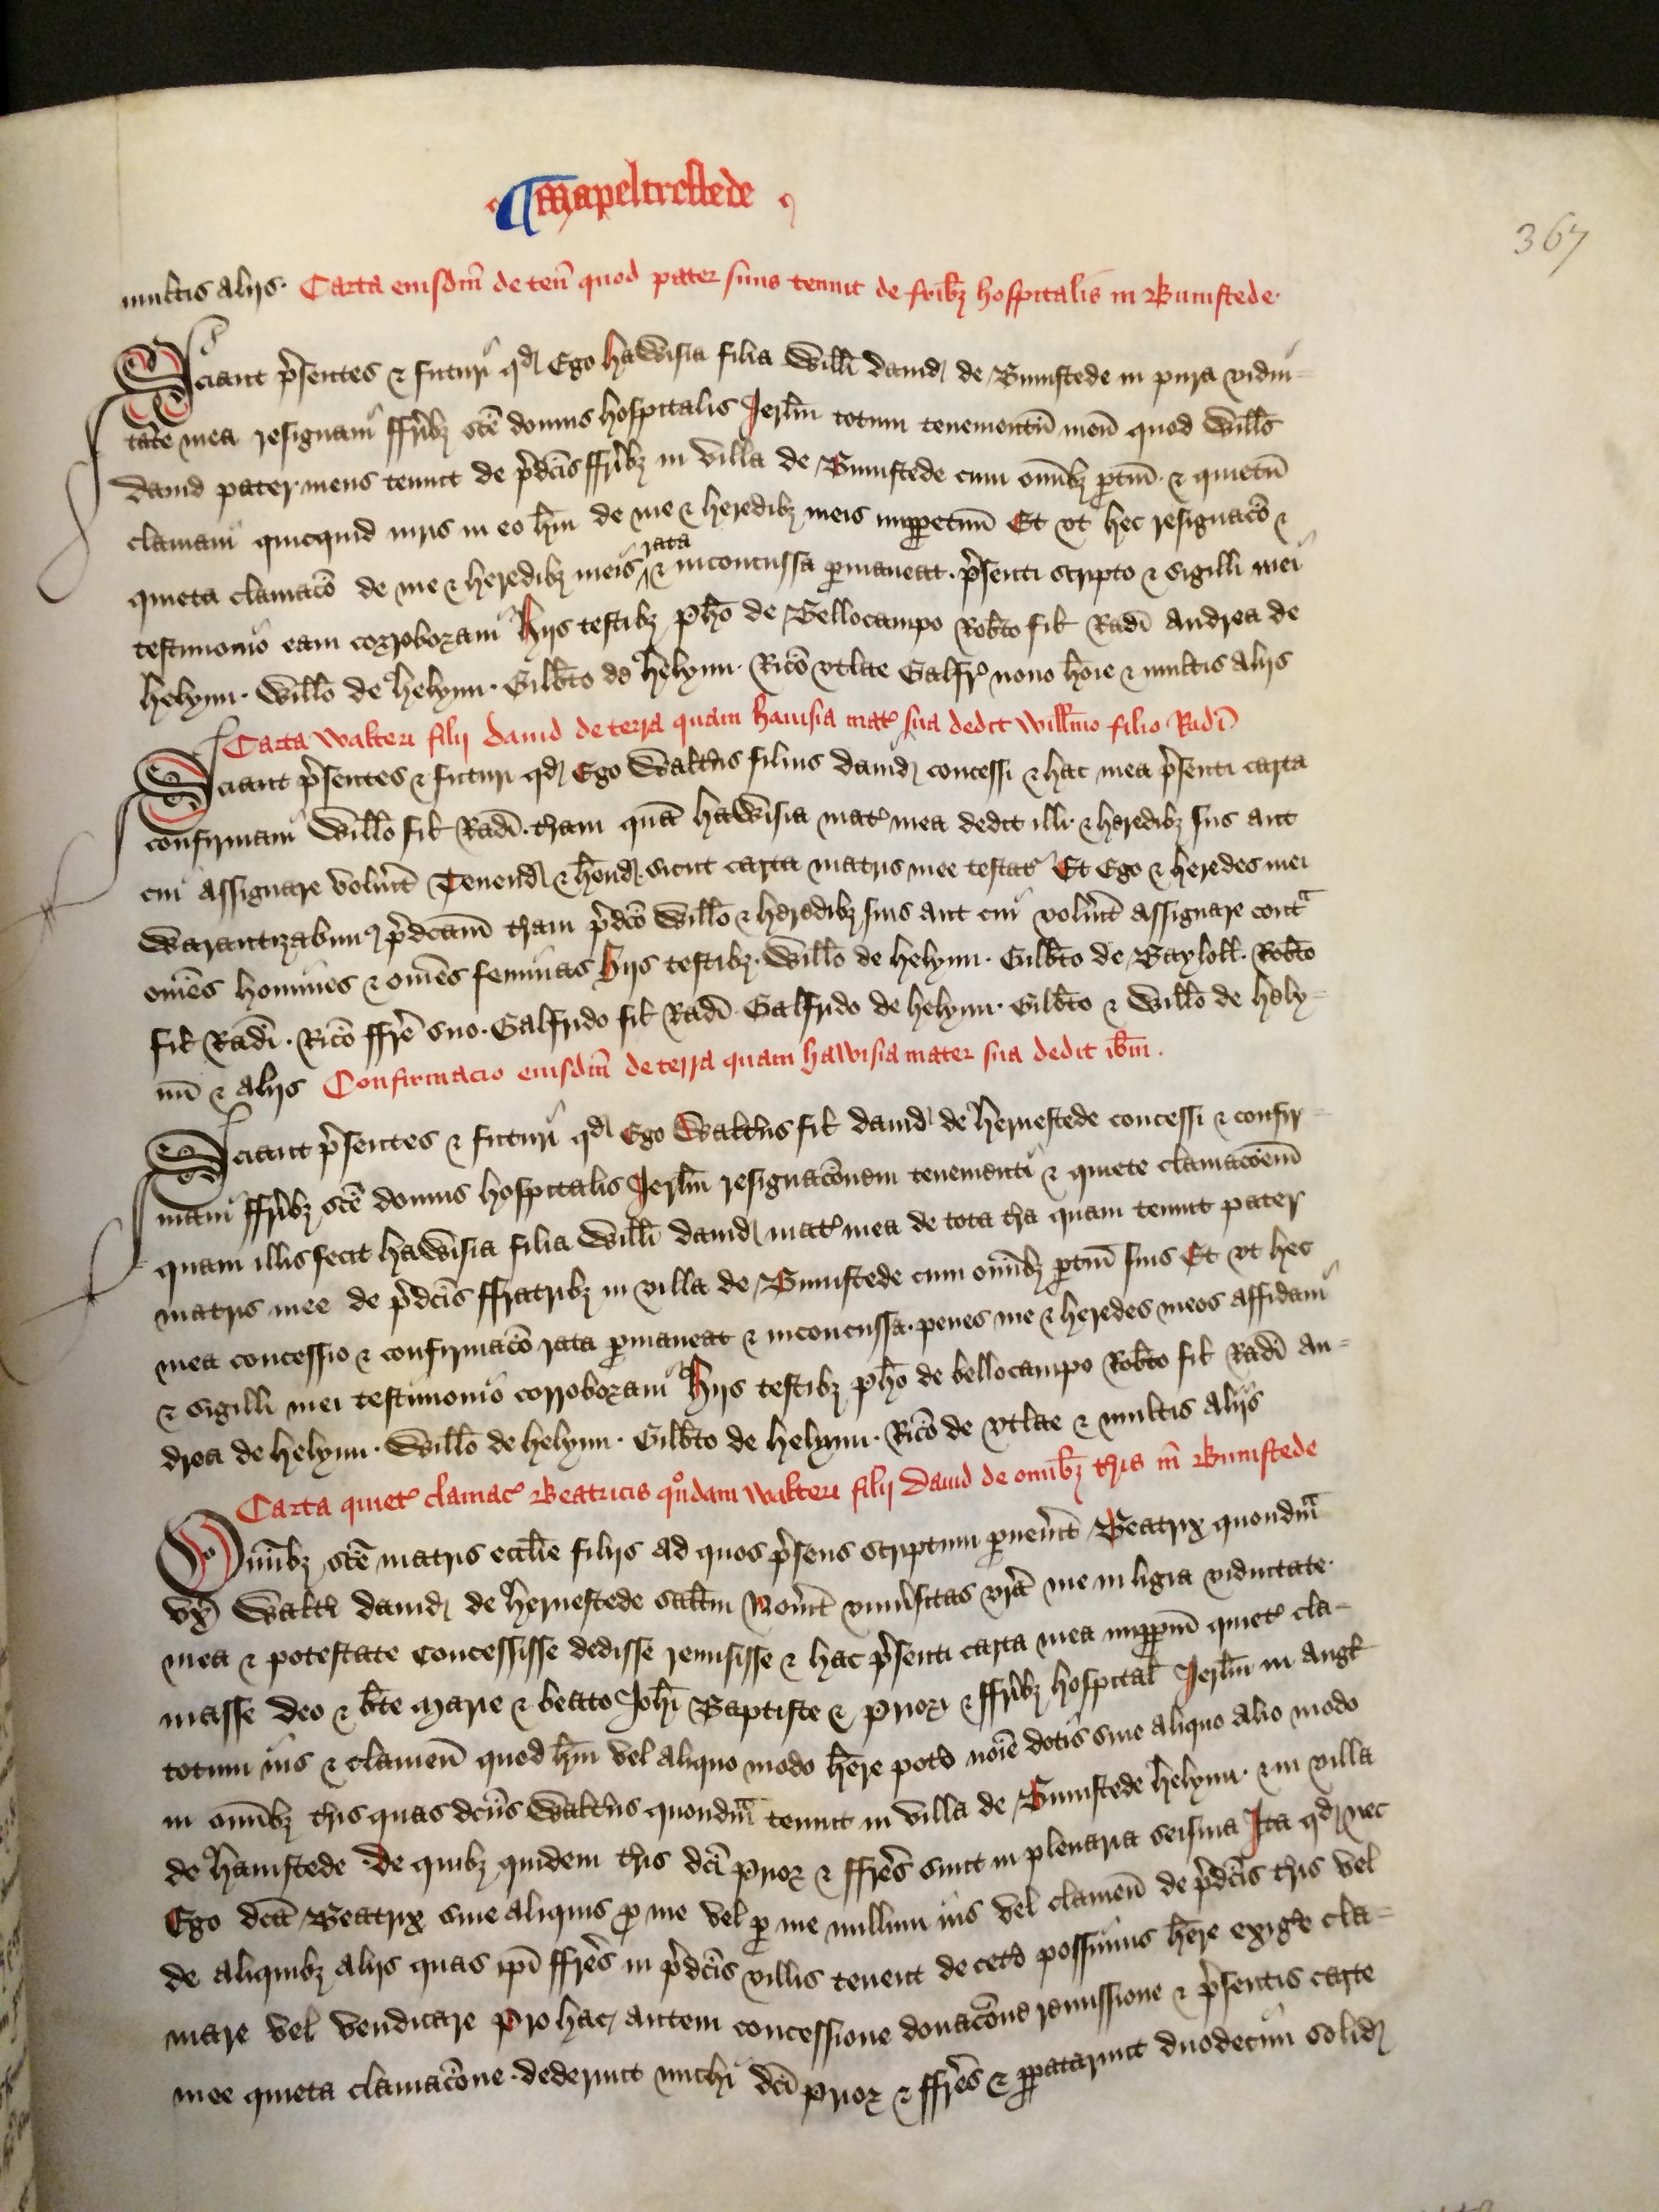 ¶ Mapeltrestede
367
multis alijs. Carta eiusdm̄ de ten̄ quod pater suus tenuit de frib3 hospitalis in Bumstede
Sciant p̄sentes & futuri qd Ego hawisia filia Willī dauid de Bumstede in pura vidui-
tate mea resignaui ffrīb3 scē domus hospitalis Jerl̄m totum tenementū meū quod Will̄s
dauid pater meus tenuit de p̄dcīs ffrīb3 in villa de Bumstede cum om̄ib3 ptin̄ & quietū
clamaui quicquid iuris in eo h̄ui de me & heredib3 meis imppetuū Et vt hec resignacō &
quieta clamacō de me & heredib3 meis rata & inconcussa pmaneat. p̄senti scripto & sigilli mei
testimonio eam corroboraui hijs testib3 ph̄o de Bellocampo Rob̄to fil̄ Radī Andrea de
helynn. Will̄o de helynn. Gilb̄to de helynn. Ric̄o vtlate Galfr̄ nouo hōie & multis alijs
Carta walteri filij dauid de terra quam hawisia mat̄ sua dedit will̄mo filio Radī
Sciant p̄sentes & futuri qd Ego Walt̄us filius dauid concessi & hac mea p̄senti carta
confirmaui Will̄o fil̄ Radī. t̄ram quā hawisia mat̄ mea dedit illi & heredib3 suis aut
cui assignare voluīt Tenend & h̄end sicut carta matris mee testat̄ Et Ego & heredes mei
Warantizabim9 p̄dcām t̄ram p̄dcō Will̄o & heredib3 suis aut cui voluīt assignare contā
om̄es homines & om̄es feminas hijs testib3. Will̄o de helynn. Gilb̄to de Bayloll̄. Rob̄to
fil̄ Radī. Ric̄o ffr̄e suo. Galfrido fil̄ Radī Galfrido de helynn. Gilb̄to & Will̄o de hely-
nn̄ & alijs Confirmacio eiusdm̄ de terra quam hawisia mater sua dedit ib̄m.
Sciant p̄sentes & futuri qd Ego Walt̄us fil̄ dauid de hernestede concessi & confir-
maui ffrīb3 scē domus hospitalis Jerl̄m resignacōnem tenementi & quiete clamacōem̄
quam illis fecit hawisia filia Willī dauid mat̄ mea de tota t̄ra quam tenuit pater
matris mee de p̄dcīs ffratrib3 in villa de Bumstede cum om̄ib3 ptin̄ suis Et vt hec
mea concessio & confirmacō rata pmaneat & inconcussa. penes me & heredes meos affidaui
& sigilli mei testimonio corroboraui hijs testib3 ph̄o de bellocampo Rob̄to fil̄ Radī An-
drea de helynn. Will̄o de helynn. Gilb̄to de helynn. Ric̄o de vtlate & multis alijs
Carta quiet̄ clamac̄ Beatricis quōdam walteri filij dauid de omīb3 t̄ris in Bumstede
Omīb3 scē matris eccl̄ie filijs ad quos p̄sens scriptum puen̄it Beatrix quondm̄
vx̄ Walt̄i dauid de hernestede sal̄tm Noūit vniūsitas vr̄a me in ligia viduitate
mea & potestate concessisse dedisse remisisse & hac p̄senti carta mea impp̄m quiet̄ cla-
masse deo & b̄te Marie & beato Joh̄i Baptiste & Priori & ffrīb3 hospital̄ Jerl̄m in Angl̄
totum ius & clameū quod h̄ui vel aliquo modo h̄ere potō noīe dotis siue aliquo alio modo
in om̄ib3 t̄ris quas dcūs Walt̄us quondm̄ tenuit in villa de Bumstede helynn. & in villa
de hamstede De quib3 quidem t̄ris dcī Prior & ffr̄es sunt in plenaria seisina Ita qd nec
Ego dcā Beatrix siue aliquis p me vel p me nullum ius vel clameū de p̄dcīs t̄ris vel
de aliquib3 alijs quas ip̄i ffr̄es in p̄dcīs villis tenent de cetō possimus h̄ere exiḡe cla-
mare vel vendicare Pro hac autem concessione donacōne remissione & p̄sentis carte
mee quieta clamacōne. dederunt michi dcī Prior & ffr̄es & ppatarunt duodecim solid